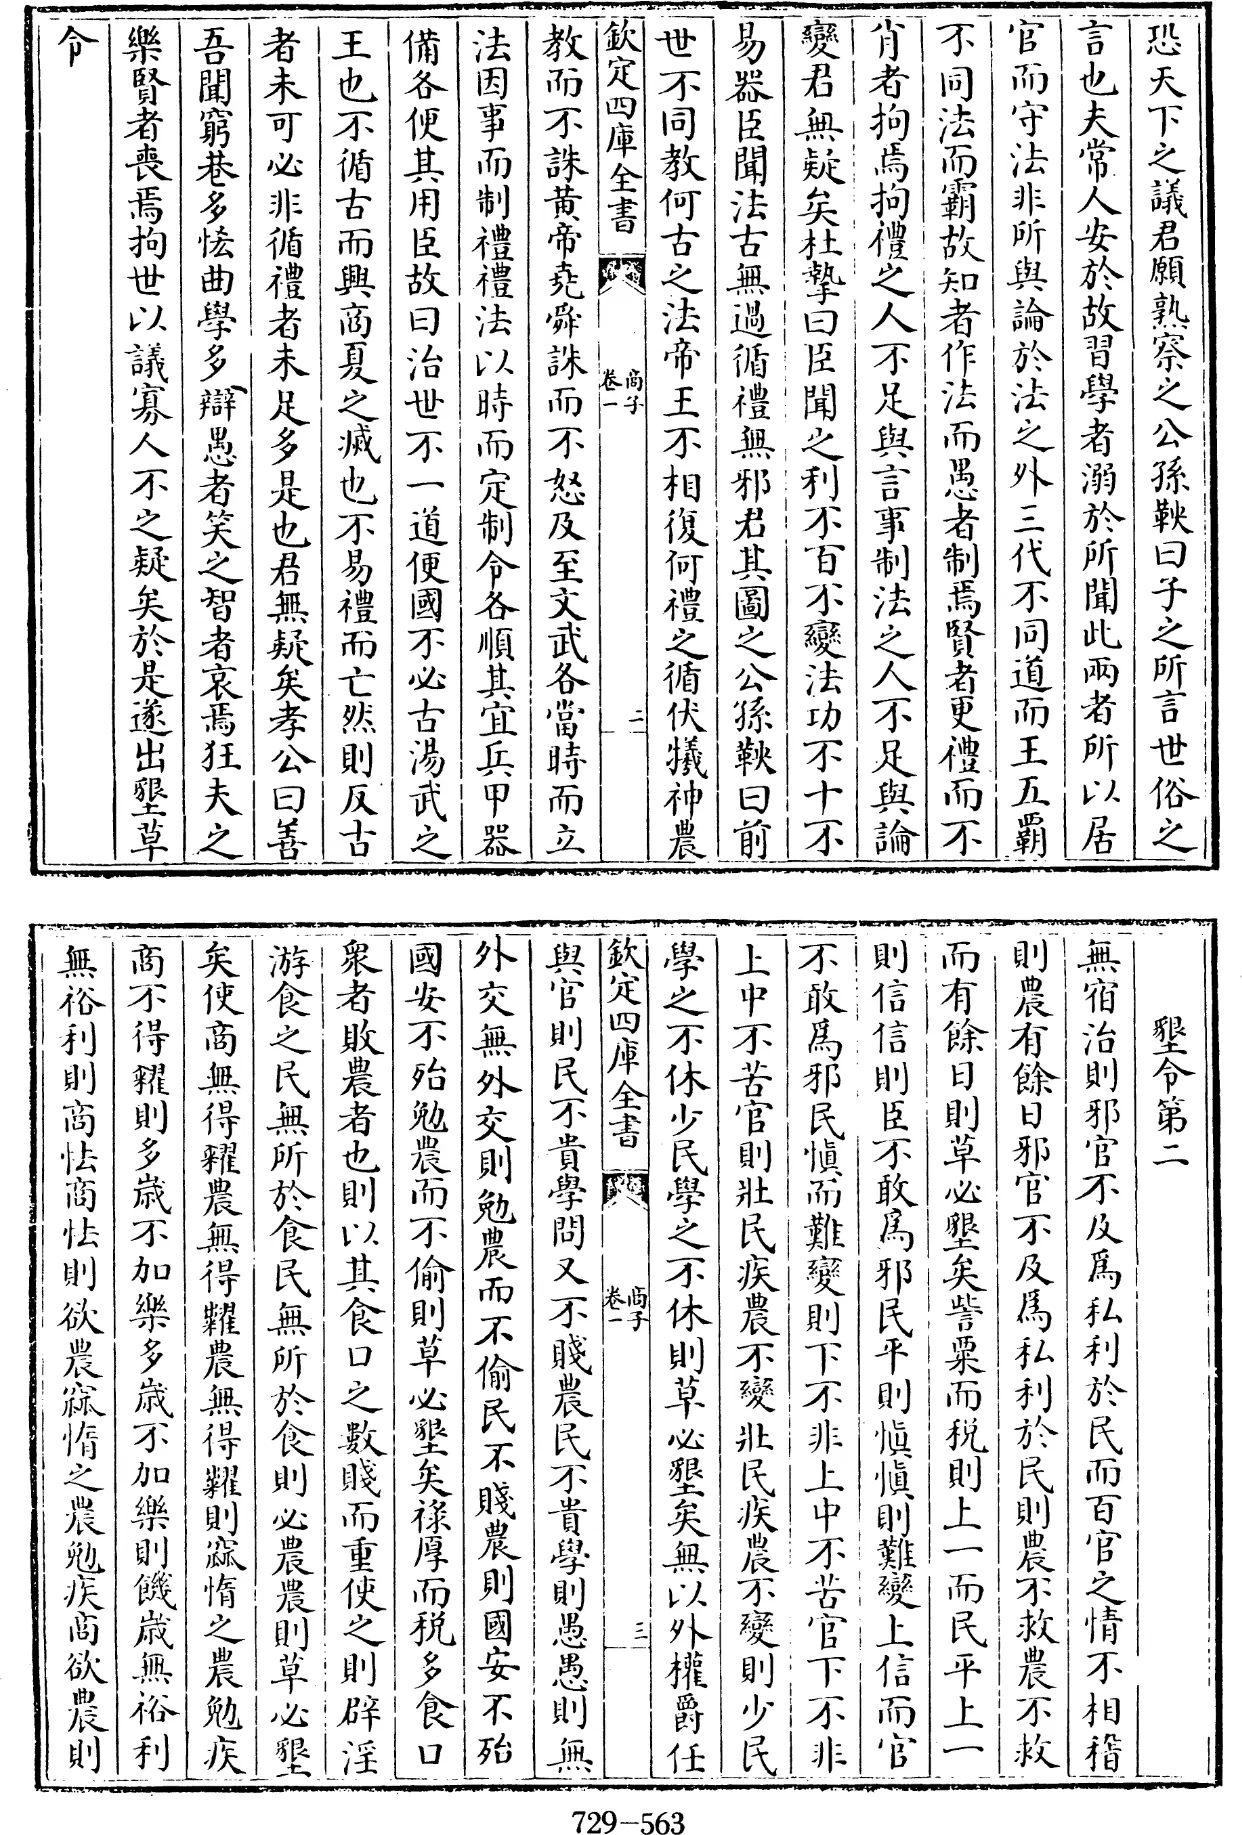 恐天下之議君願熟察之公孫鞅曰子之所言世俗之
言也夫常人安於故習學者溺於所聞此兩者所以居
官而守法非所與論於法之外三代不同道而王五霸
不同法而霸故知者作法而愚者制焉賢者更禮而不
肖者拘焉拘禮之人不足與言事制法之人不足與論
變君無疑矣杜摯曰臣聞之利不百不變法功不十不
易器臣聞法古無過循禮無邪君其圖之公孫鞅曰前
世不同教何古之法帝王不相復何禮之循伏犧神農
欽定四庫全書
商子
卷一
二
教而不誅黄帝堯舜誅而不怒及至文武各當時而立
法因事而制禮禮法以時而定制令各順其宜兵甲器
備各便其用臣故曰治世不一道便國不必古湯武之
王也不循古而興商夏之滅也不易禮而亡然則反古
者未可必非循禮者未足多是也君無疑矣孝公曰善
吾聞窮巷多恠曲學多辯愚者笑之智者哀焉狂夫之
樂賢者喪焉拘世以議寡人不之疑矣於是遂出墾草
令
墾令第二
無宿治則邪官不及爲私利於民而百官之情不相稽
則農有餘日邪官不及爲私利於民則農不救農不救
而有餘日則草必墾矣訾粟而税則上一而民平上一
則信信則臣不敢爲邪民平則慎慎則難變上信而官
不敢爲邪民慎而難變則下不非上中不苦官下不非
上中不苦官則壯民疾農不變壯民疾農不變則少民
學之不休少民學之不休則草必墾矣無以外權爵任
欽定四庫全書
商子
卷一
三
與官則民不貴學問又不賤農民不貴學則愚愚則無
外交無外交則勉農而不偷民不賤農則國安不殆
國安不殆勉農而不偷則草必墾矣祿厚而税多食口
衆者敗農者也則以其食口之數賤而重使之則辟淫
游食之民無所於食民無所於食則必農農則草必墾
矣使商無得糴農無得糶農無得糶則窳惰之農勉疾
商不得糴則多歲不加樂多歲不加樂則饑歲無裕利
無裕利則商怯商怯則欲農窳惰之農勉疾商欲農則
729-563